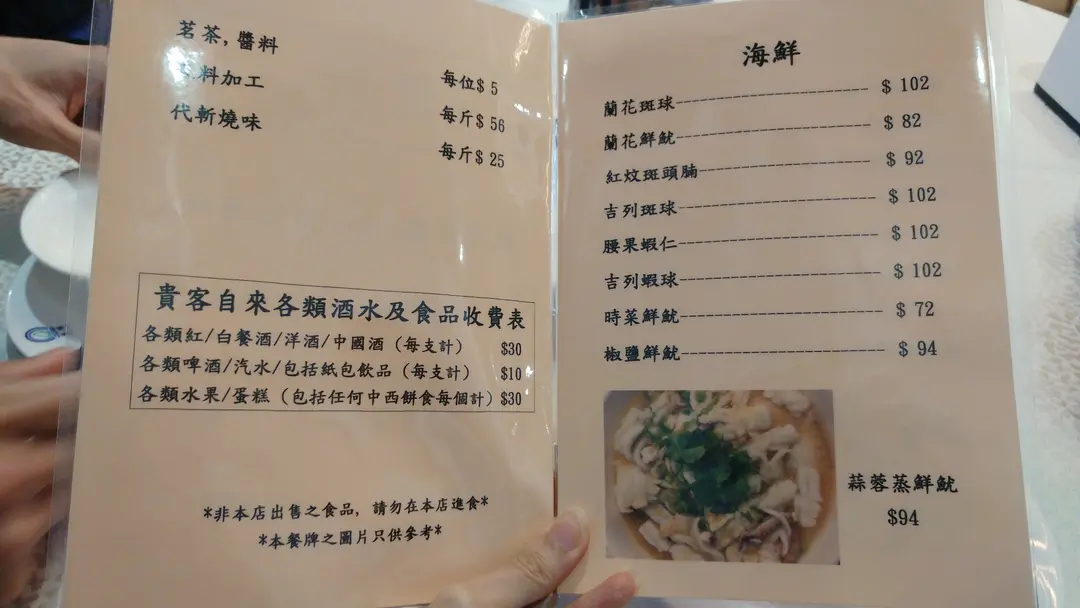 茗茶, 醬料
料加工
代斬燒味
每位$ 5
每斤$ 56
每斤$ 25
貴客自來各類酒水及食品收費表
各類紅/白餐酒/洋酒/中國酒 (每支計) $30
各類啤酒/汽水/包括紙包飲品 (每支計) $10
各類水果/蛋糕 (包括任何中西餅食每個計) $30
*非本店出售之食品, 請勿在本店進食*
*本餐牌之圖片只供參考*
海鮮
蘭花斑球 $ 102
蘭花鮮魷 $ 82
紅炆斑頭腩 $ 92
吉列斑球 $ 102
腰果蝦仁 $ 102
吉列蝦球 $ 102
時菜鮮魷 $ 72
椒鹽鮮魷 $ 94
蒜蓉蒸鮮魷
$94